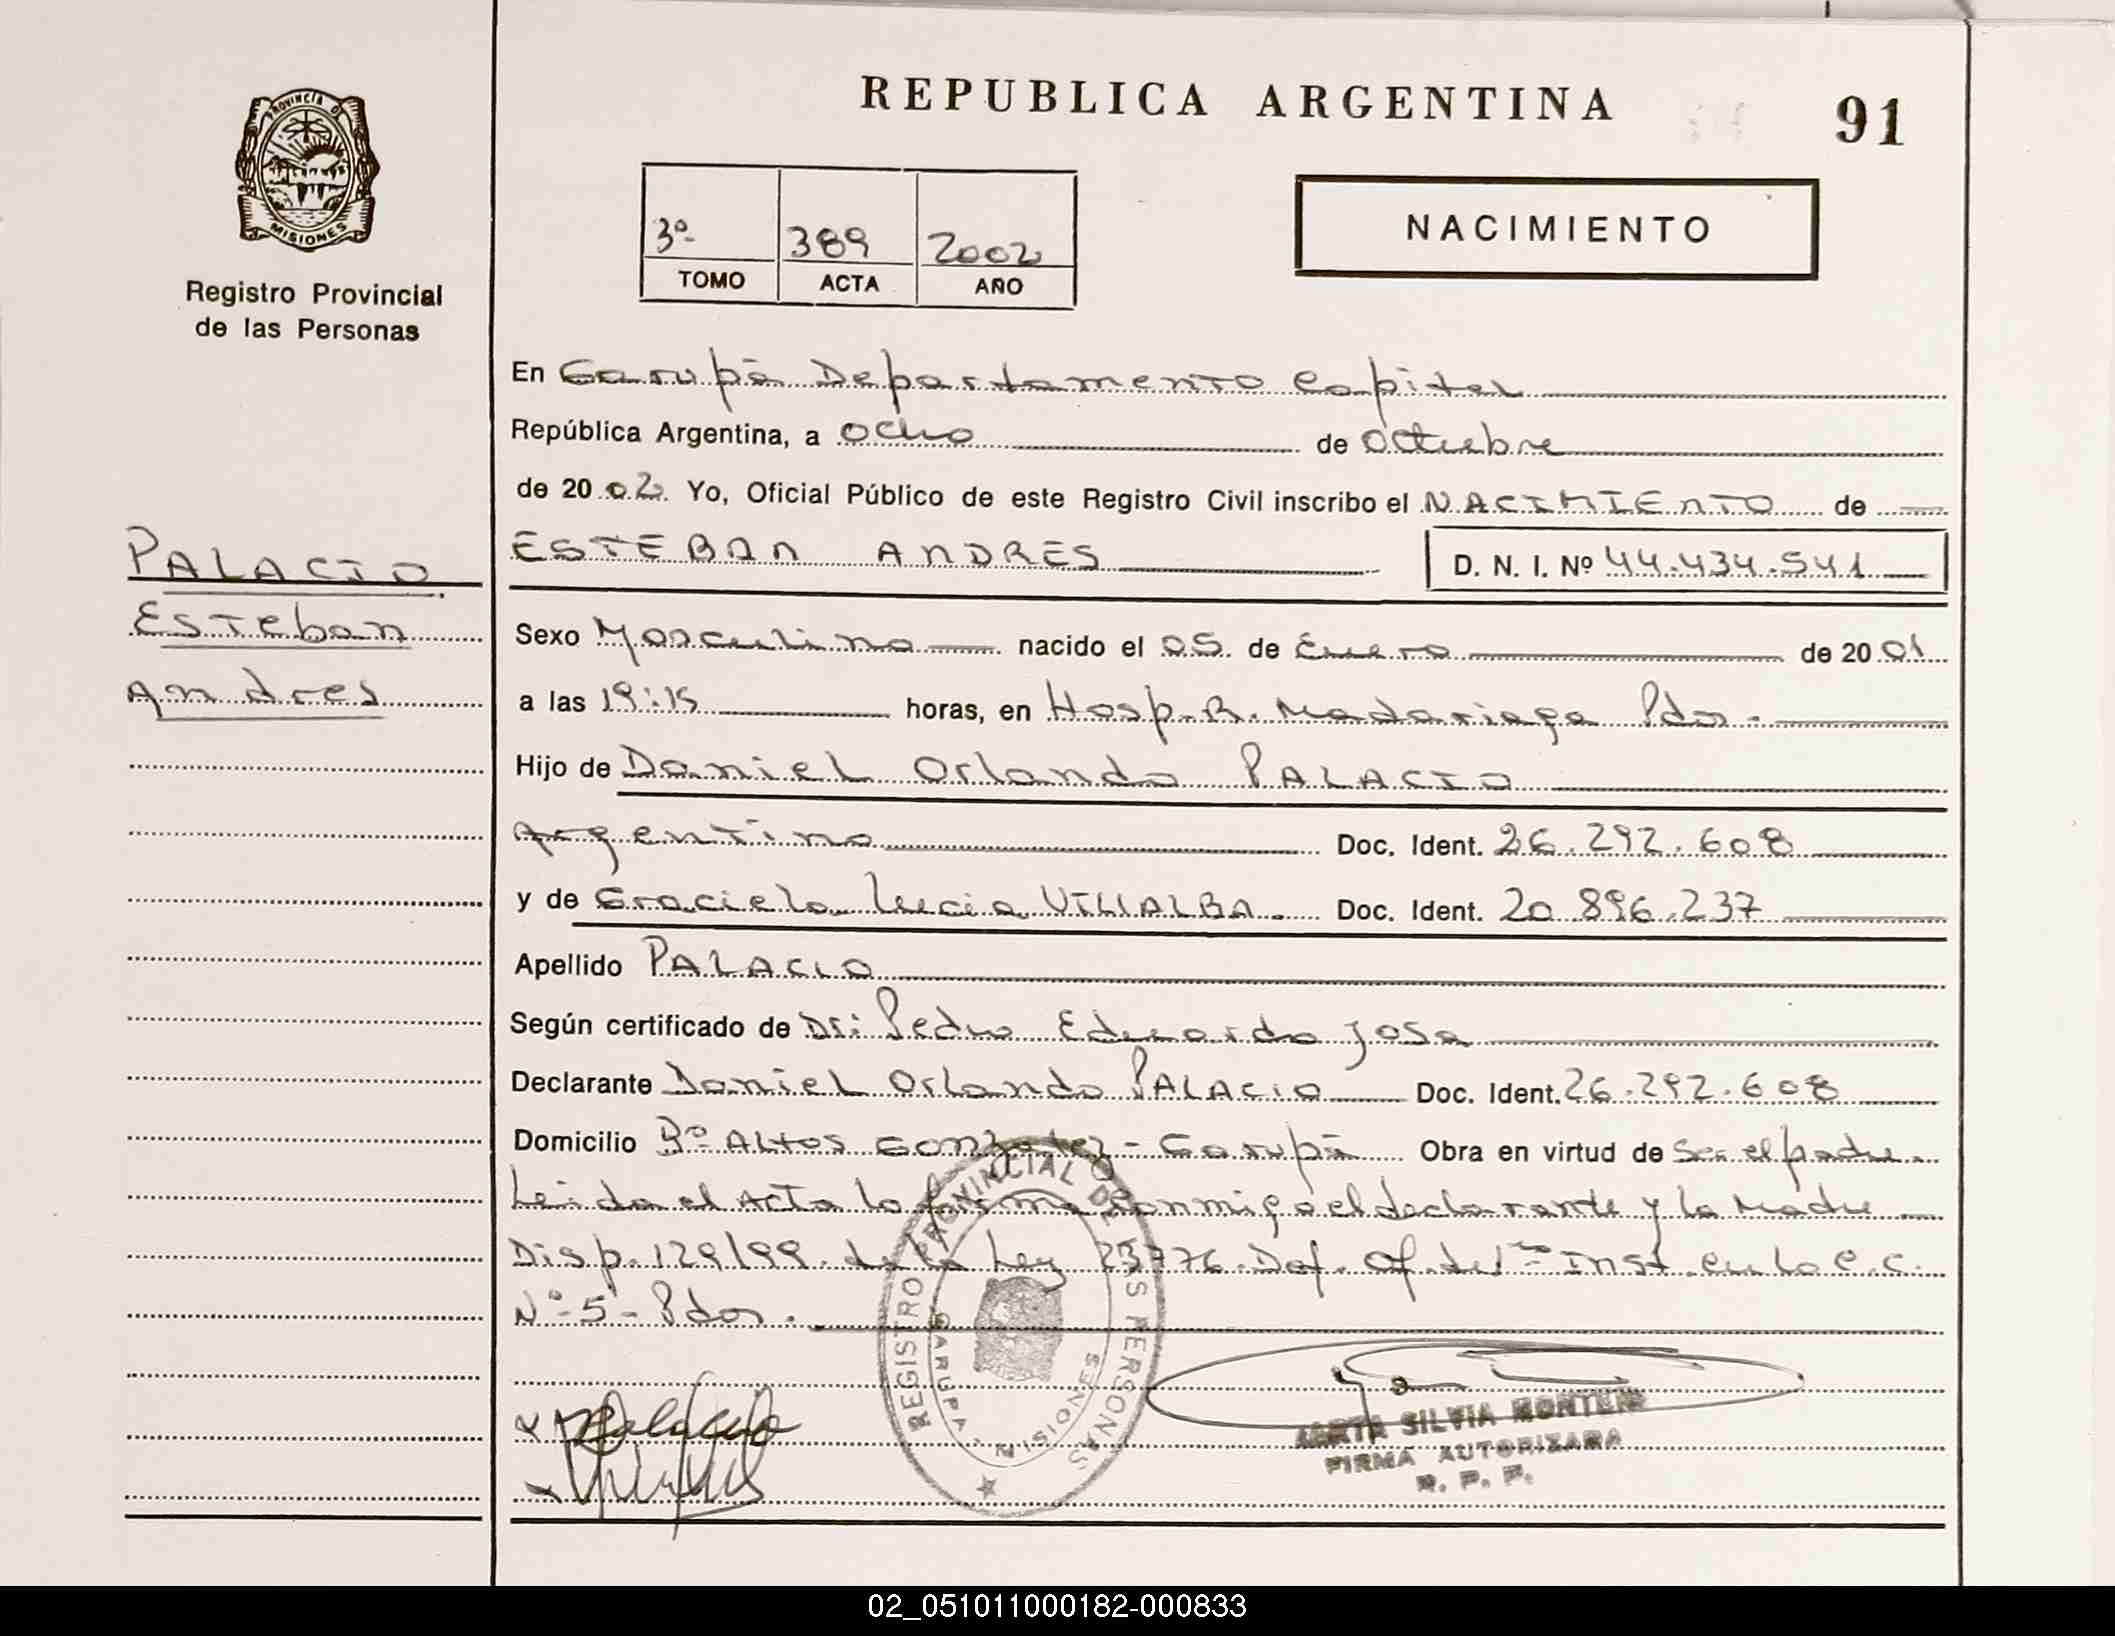 REPUBLICA ARGENTINA
91
PROVINCIA DE
MISIONES
Registro Provincial
de las Personas
3º 389 2002
TOMO ACTA AÑO
NACIMIENTO
En Garupá Departamento Capital
República Argentina, a ocho de octubre
de 2002. Yo, Oficial Público de este Registro Civil inscribo el NACIMIENTO de
ESTEBAN ANDRES D. N. I. Nº 44.434.541
PALACIO
Esteban
Andres
Sexo Masculino nacido el 05 de Enero de 2001
a las 19:15 horas, en Hosp. R. Madariaga Pdas.
Hijo de Daniel Orlando PALACIO
Argentino Doc. Ident. 26.292.608
y de Graciela Lucia VILLALBA. Doc. Ident. 20.896.237
Apellido PALACIO
Según certificado de Dr: Pedro Eduardo Josa
Declarante Daniel Orlando PALACIO Doc. Ident. 26.292.608
Domicilio Bº ALTOS GONZALEZ - Garupá Obra en virtud de Ser el padre.
Leida el Acta la firma conmigo el declarante y la Madre
Disp. 129/99 de la Ley 23776. Def. Of. de 1ra Inst. en lo C.C.
Nº 5 - Pdas.
REGISTRO PROVINCIAL DE LAS PERSONAS
GARUPA - MISIONES
Palacio
SILVIA
FIRMA AUTORIZADA
R. P. P.
02_051011000182-000833